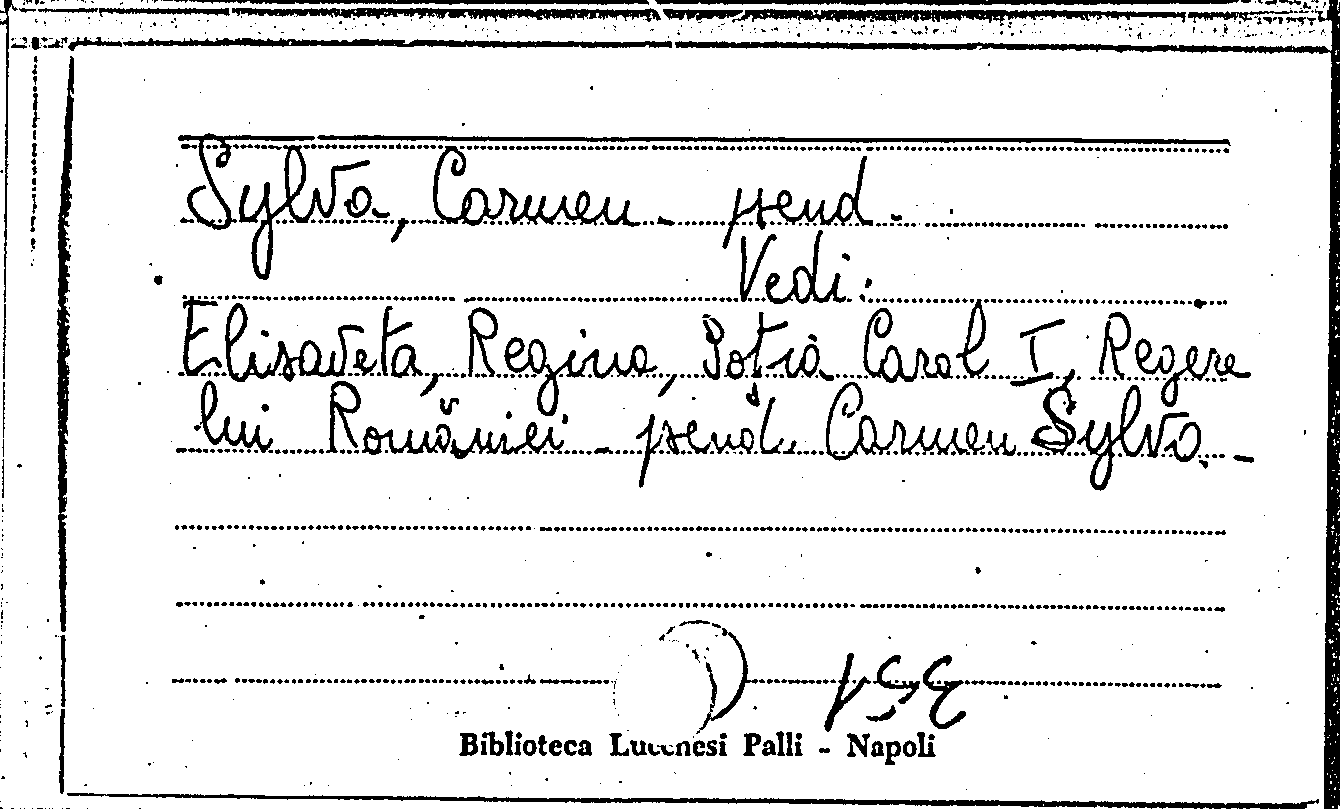 Sylva, Carmen - pseud.
Vedi:
Elisaveta, Regina, Soţia Carol I, Regere
lui României - pseud. Carmen Sylva -
Biblioteca Lucchesi Palli - Napoli